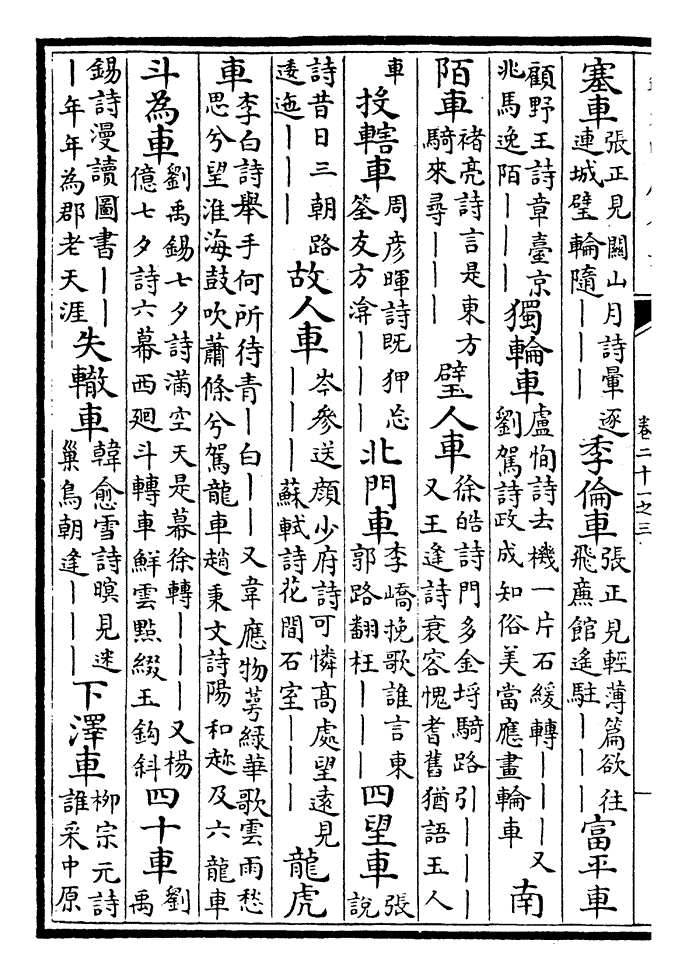 塞車張正見關山月詩暈逐連城璧輪隨｜｜｜季倫車張正見輕薄篇欲往飛廉館遙駐｜｜｜富平車
顧野王詩章臺京兆馬逸陌｜｜｜獨輪車盧恂詩去機一片石緩轉｜｜｜又劉駕詩政成知俗美當應畫輪車南
陌車褚亮詩言是東方騎來尋｜｜｜璧人車徐皓詩門多金埒騎路引｜｜｜又王逢詩衰容愧耆舊猶語玉人
車投轄車周彥暉詩既狎忘筌友方淹｜｜｜北門車李嶠挽歌誰言東郭路翻枉｜｜｜四望車張說
詩昔日三朝路逶迤｜｜｜故人車岑參送顏少府詩可憐高處望遠見｜｜｜蘇軾詩花間石室｜｜｜龍虎
車李白詩舉手何所待青｜白｜｜又韋應物萼綠華歌雲雨愁思兮望淮海鼓吹蕭條兮駕龍車趙秉文詩陽和趂及六龍車
斗為車劉禹錫七夕詩滿空天是幕徐轉｜｜｜又楊億七夕詩六幕西廻斗轉車鮮雲點綴玉鈎斜四十車劉禹
錫詩漫讀圖書｜｜｜年年為郡老天涯失轍車韓愈雪詩暝見迷巢鳥朝逢｜｜｜下澤車柳宗元詩誰采中原
卷二十一之三